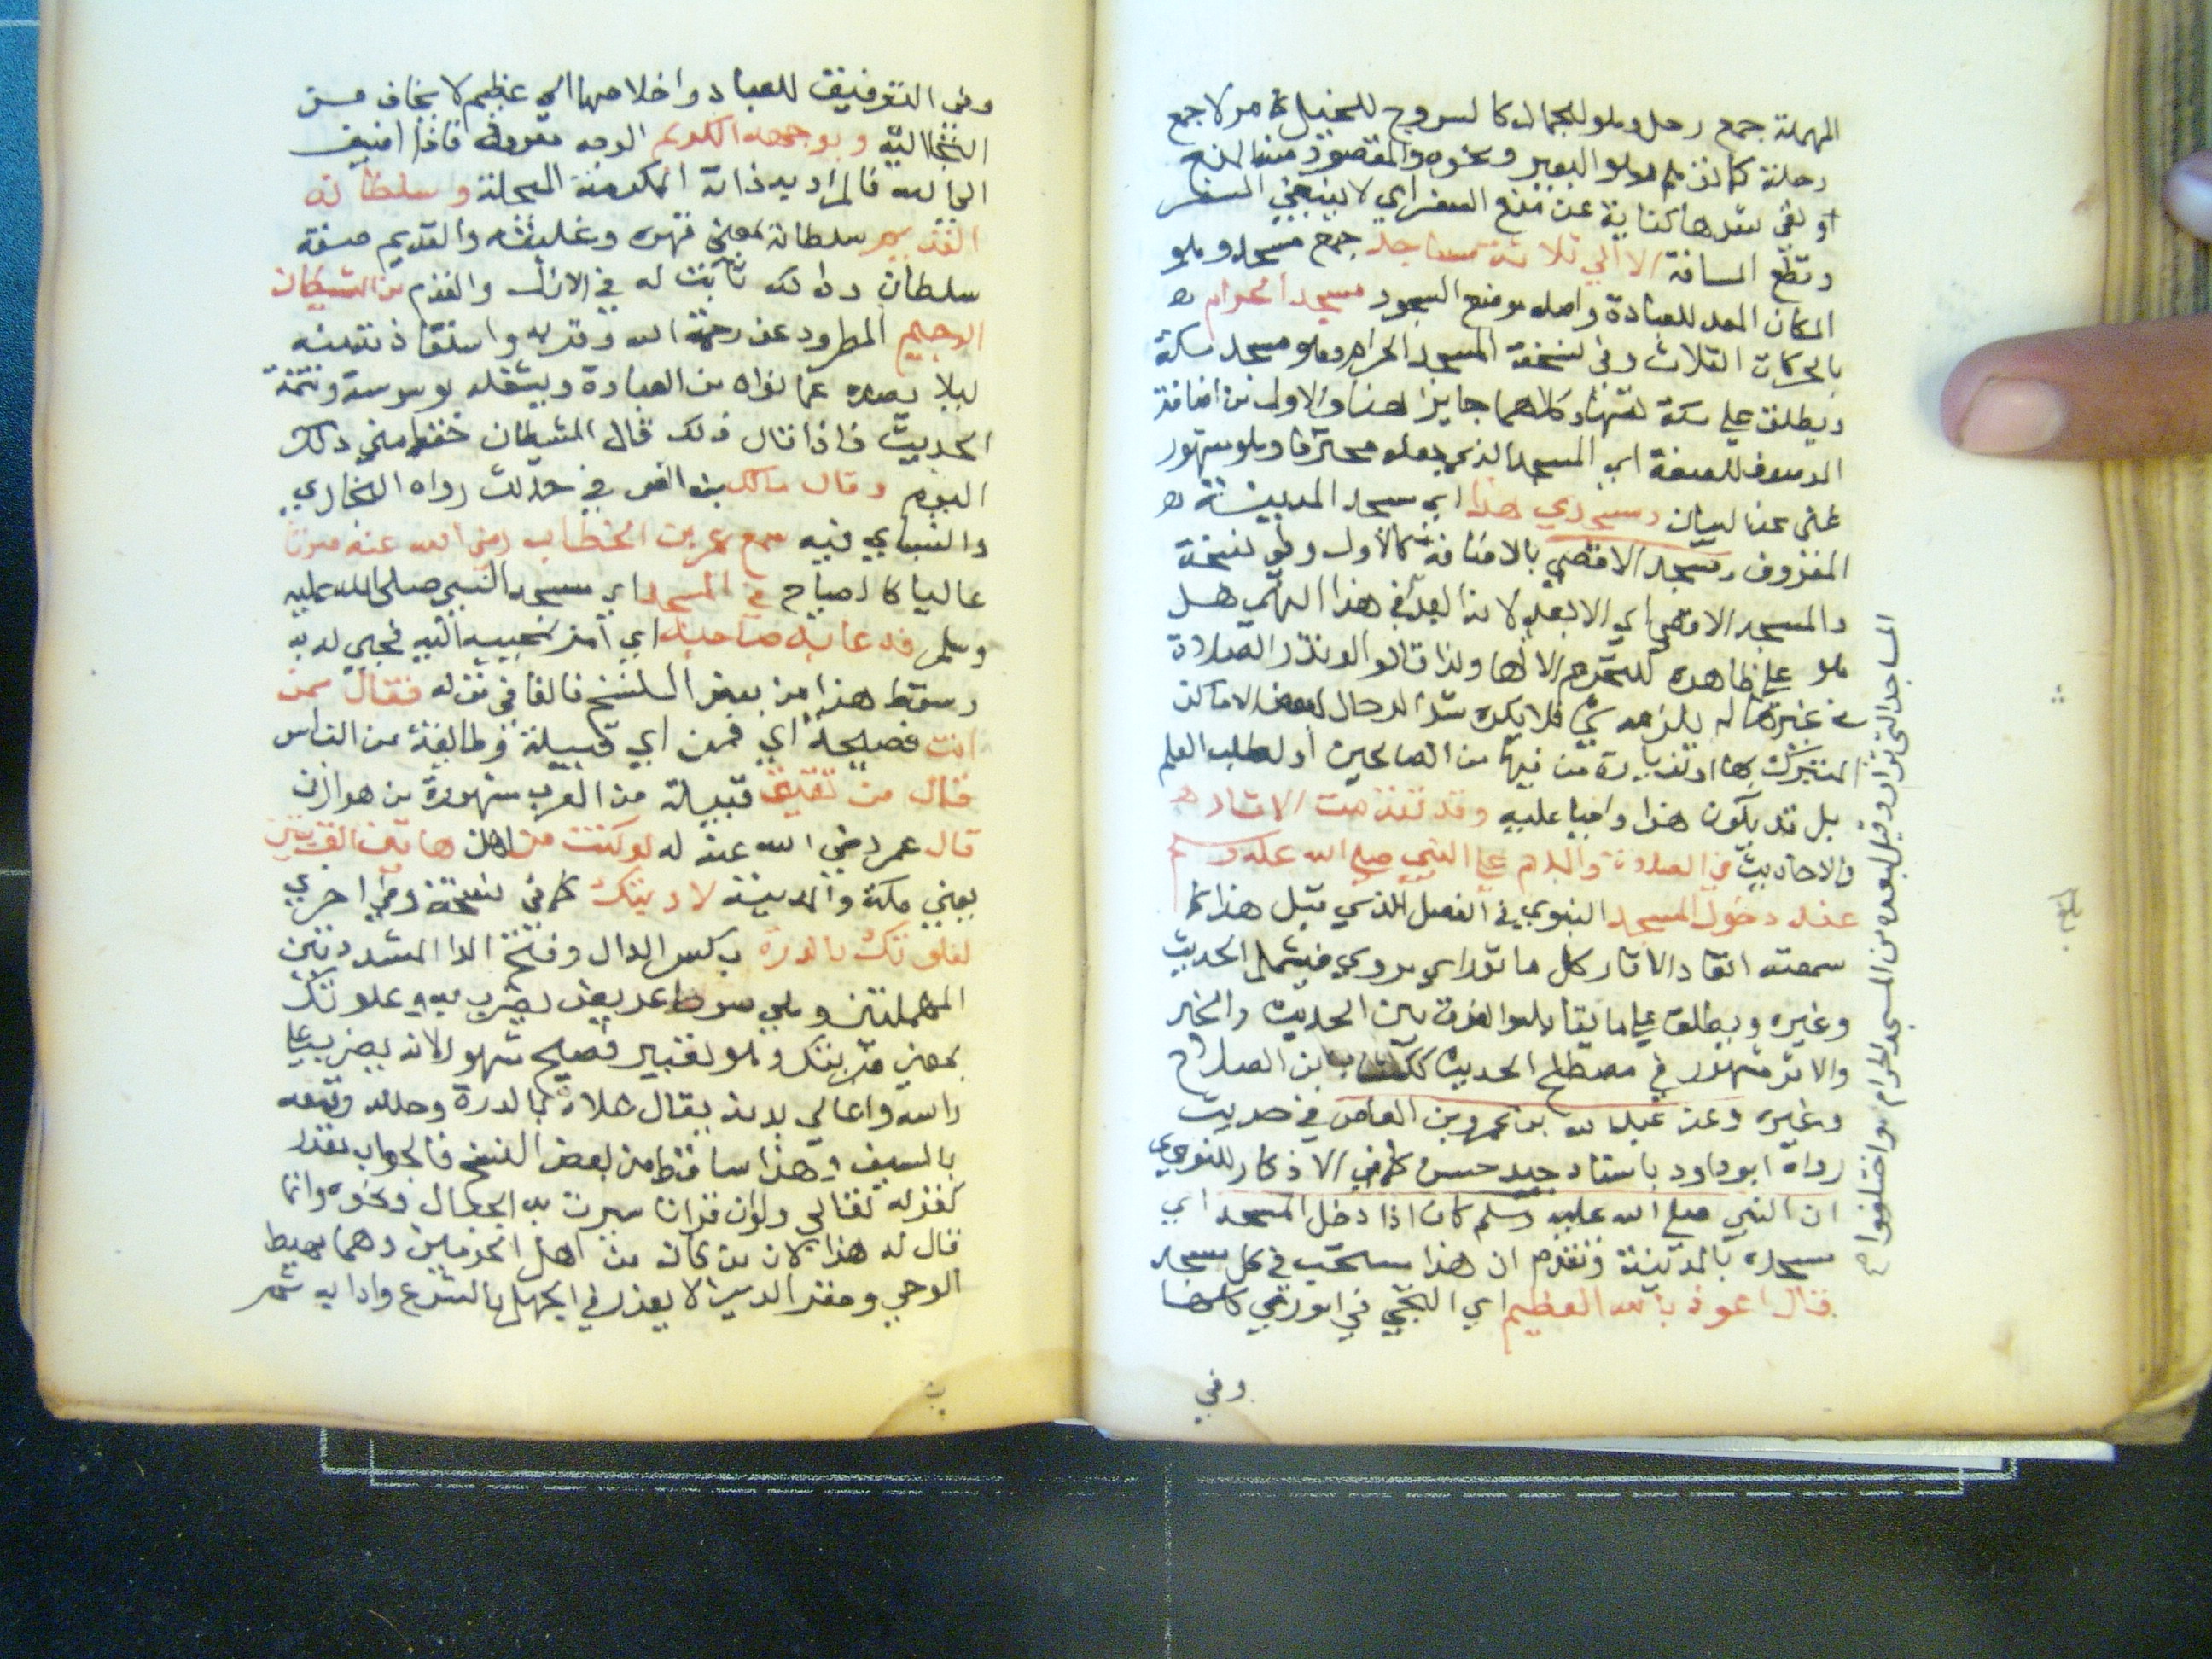 المهملة جمع رحل وهو للجمال كالسروج للخيل كما مر لا جمع
رحلة كما توهم وهو البعير ونحوه والمقصود هنا المنع
او نفي شدها كناية عن منع السفر اي لا ينبغي السفر
وقطع المسافة الا الي ثلاثة مساجد جمع مسجد وهو
المكان المعد للعبادة واصله موضع السجود مسجد الحرام
بالحركات الثلاث وفي نسخة المسجد الحرام وهو مسجد مكة
ويطلق علي مكة نفسها وكلاهما جايز هنا والاول من اضافة
الموصوف للصفة اي المسجد الذي جعله محترما وهو مشهور
غني عن البيان ومسجدي هذا اي مسجد المدينة
المعروف ومسجد الاقصي بالاضافة كالاول وفي نسخة
والمسجد الاقصي اي الابعد لانه ابعد في هذا النهي هل
هو علي ظاهره للتحريم ام لا ولذا قالوا لو نذر الصلاة
في غيرها لم يلزمه شي فلا يكره شد الرحال لبعض الاماكن
المتبرك بها او لزيارة من فيها من الصالحين او لطلب العلم
بل قد يكون هذا واجبا عليه وقد تقدمت الاثار
والاحاديث في الصلاة والسلام علي النبي صلي الله عليه وسلم
عند دخول المسجد النبوي في الفصل الذي قبل هذا كما
سمعته انفا والاثار كل ما يؤثر اي يروي فيشمل الحديث
وغيره ويطلق علي ما يقابله والفرق بين الحديث والخبر
والاثر مشهور في مصطلح الحديث ككتاب ابن الصلاح
وغيره وعن عبد الله بن عمرو بن العاص في حديث
رواه ابو داود باسناد جيد حسن كما في الاذكار للنووي
ان النبي صلي الله عليه وسلم كان اذا دخل المسجد اي
مسجده بالمدينة وتقدم ان هذا مستحب في كل مسجد
قال اعوذ بالله العظيم اي التجي في اموري كلها
وفي
المساجد التي تزار وقيل لبعده من المسجد الحرام واختلفوا
بلغ
وفي التوفيق للعبادة واخلاصها الي عظيم لا يخاف من
التجا اليه وبوجهه الكريم الوجه معروف فاذا اضيف
الي الله فالمراد به ذاته المكرمة المبجلة وسلطانه
القديم سلطانه بمعني قهره وغلبته والقديم صفة
سلطان وذلك ثابت له في الازل والقدم من الشيطان
الرجيم المطرود عن رحمة الله وقربه واستعاذته منه
ليلا يصده عما نواه من العبادة ويشغله بوسوسة وتتمة
الحديث فاذا قال ذلك قال الشيطان حفظ مني ذلك
اليوم وقال مالك بن انس في حديث رواه البخاري
والنساي فيه سمع عمر بن الخطاب رضي الله عنه صوتا
عاليا كالصياح في المسجد اي مسجد النبي صلي الله عليه
وسلم فدعا بصاحبه اي امر بمجييه اليه فجيي له به
وسقط هذا من بعض النسخ فالفا في قوله فقال ممن
انت فصيحة اي فمن اي قبيلة وطايفة من الناس
فقال من ثقيف قبيلة من العرب مشهورة من هوازن
قال عمر رضي الله عنه له لو كنت من اهل هاتين القريتين
يعني مكة والمدينة لادبتك كما في نسخة وفي اخري
لعلوتك بالدرة بكسر الدال وفتح الرا المشددتين
المهملتين وهي سوط عريض يضرب به وعلوتك
بمعني ضربتك وهو تعبير فصيح مشهور لانه يضرب علي
راسه واعالي بدنه يقال علاه بالدرة وجلله وقنعه
بالسيف وهذا ساقط من بعض النسخ فالجواب مقدر
كقوله تعالي ولو ان قرانا سيرت به الجبال ونحوه وانما
قال له هذا لان من كان من اهل الحرمين وهما مهبط
الوحي ومقر الدين لا يعذر في الجهل بالشرع وادابه ثم